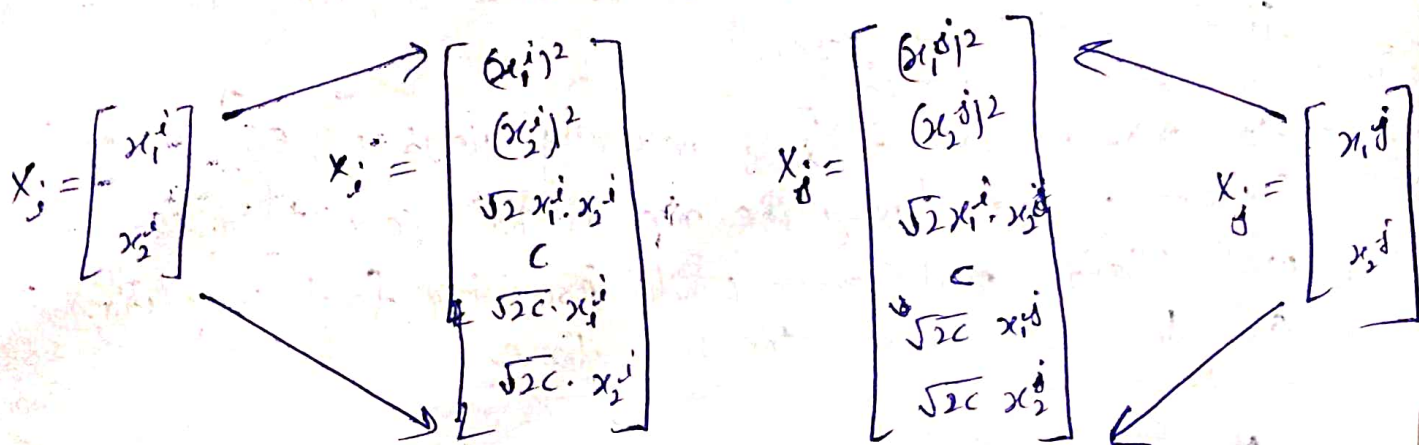 X_i = [ x_1^i
x_2^i ]
X_i = [ (x_1^i)^2
(x_2^i)^2
√2 x_1^i . x_2^i
C
√2C . x_1^i
√2C . x_2^i ]
X_j = [ (x_1^j)^2
(x_2^j)^2
√2 x_1^i . x_2^j
C
√2C x_1^j
√2C x_2^j ]
X_j = [ x_1^j
x_2^j ]